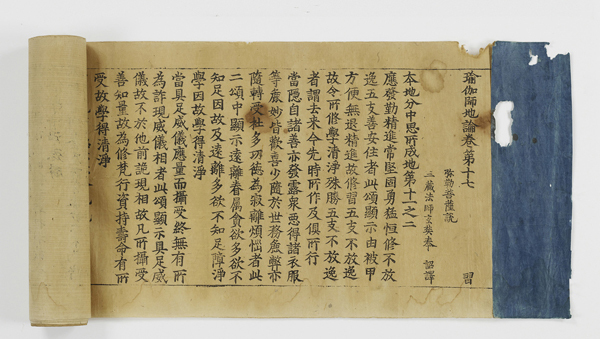 瑜伽師地論卷第十七
弥勒菩薩說
三藏法師玄奘奉 詔譯
習
本地分中思所成地第十一之二
應發勤精進常堅固勇猛恒修不放
逸五支善安住者此頌顯示由被甲
方便無退精進故修習五支不放逸
故令所修學清淨殊勝五支不放逸
者謂去来今先時所作及俱所行
當隠自諸善亦發露衆惡得諸衣服
等麁妙皆歡喜少隨於世務麁弊亦
隨轉受杜多功德為寂離煩惱者此
二頌中顯示遠離眷屬貪欲多欲不
知足因故及遠離多欲不知足障淨
學因故學得清淨
當具足威儀應量而攝受終無有所
為詐現威儀相者此頌顯示具足威
儀故不於他前詭現相故凡所攝受
善知量故為修梵行資持壽命有所
受故學得清淨